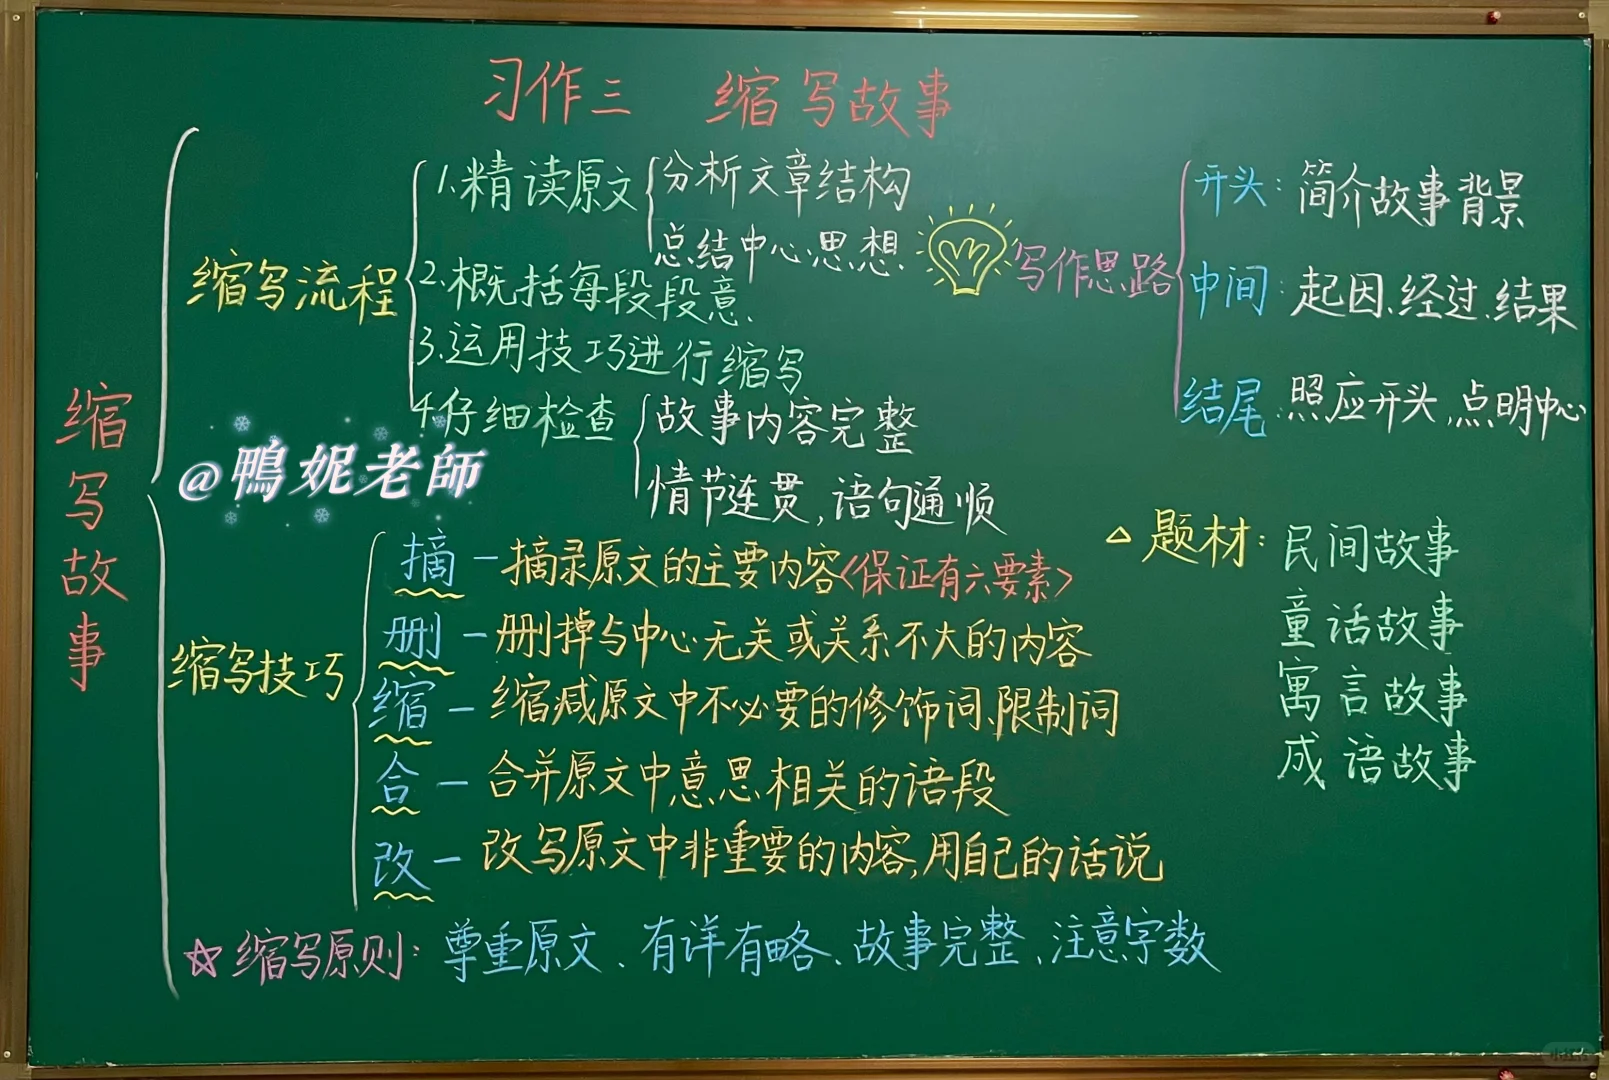 习作三 缩写故事
缩写故事
缩写流程
1.精读原文
分析文章结构
总结中心思想.
2.概括每段段意.
3.运用技巧进行缩写
4.仔细检查
故事内容完整
情节连贯,语句通顺
写作思路
开头: 简介故事背景
中间: 起因、经过、结果
结尾: 照应开头,点明中心
@鴨妮老師
缩写技巧
摘—摘录原文的主要内容<保证有六要素>
删—删掉与中心无关或关系不大的内容
缩—缩减原文中不必要的修饰词、限制词
合—合并原文中意思相关的语段
改—改写原文中非重要的内容,用自己的话说
△题材: 民间故事
童话故事
寓言故事
成语故事
☆缩写原则: 尊重原文、有详有略、故事完整、注意字数
小红书